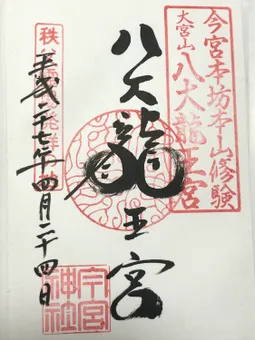 今宮本坊本山修験
大宮山
八大龍王宮
八大龍王宮
秩
平成二十七年四月二十四日
今宮
神社